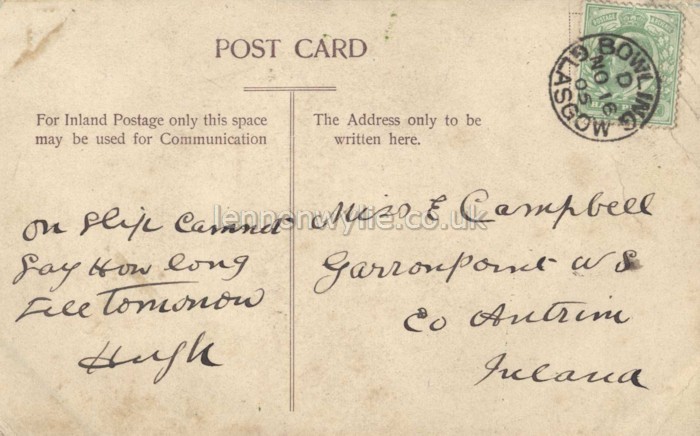 POST CARD
For Inland Postage only this space
may be used for Communication
The Address only to be
written here.
BOWLING
GLASGOW
D
NO 16
05
lennonwylie.co.uk
on slip cannot
say How long
Till Tomorrow
Hugh
Miss E Campbell
Garronpoint
Co Antrim
Ireland